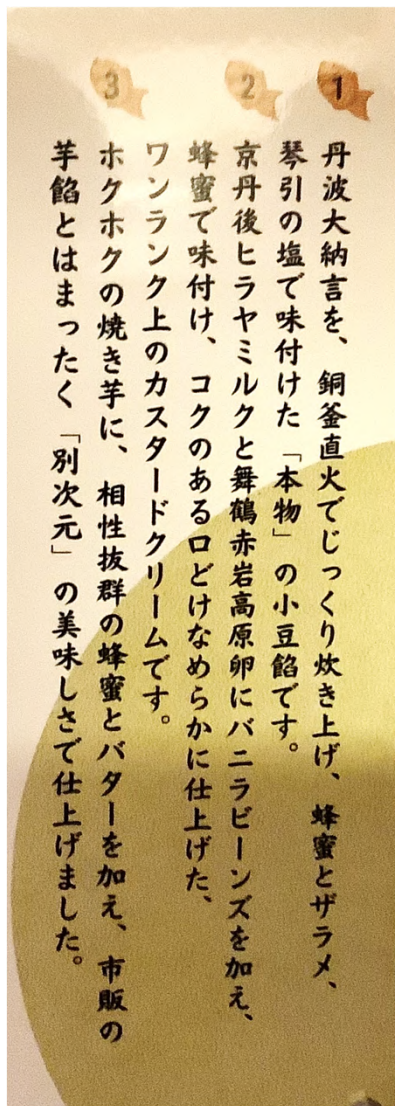 1
丹波大納言を、銅釜直火でじっくり炊き上げ、蜂蜜とザラメ、
琴引の塩で味付けた「本物」の小豆餡です。
2
京丹後ヒラヤミルクと舞鶴赤岩高原卵にバニラビーンズを加え、
蜂蜜で味付け、コクのある口どけなめらかに仕上げた、
ワンランク上のカスタードクリームです。
3
ホクホクの焼き芋に、相性抜群の蜂蜜とバターを加え、市販の
芋餡とはまったく「別次元」の美味しさで仕上げました。